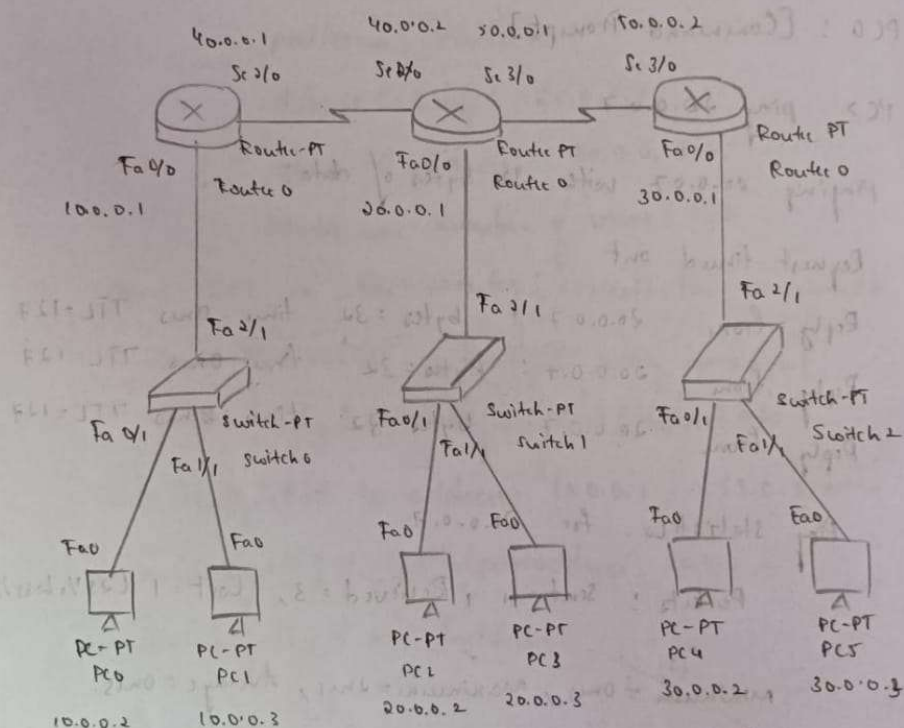 40.0.0.1 40.0.0.2 50.0.0.1 50.0.0.2
Se 2/0 Se 2/0 Se 3/0 Se 3/0
Router-PT Router PT Router PT
Fa 0/0 Fa 0/0 Fa 0/0
Router 0 Router 0 Router 0
10.0.0.1 20.0.0.1 30.0.0.1
Fa 2/1 Fa 2/1 Fa 2/1
Switch-PT Switch-PT Switch-PT
Fa 0/1 Fa 0/1 Fa 0/1
Fa 1/1 Switch 0 Fa 1/1 Switch 1 Fa 1/1 Switch 2
Fa0 Fa0 Fa0 Fa0 Fa0 Fa0
PC-PT PC-PT PC-PT PC-PT PC-PT PC-PT
PC0 PC1 PC2 PC3 PC4 PC5
10.0.0.2 10.0.0.3 20.0.0.2 20.0.0.3 30.0.0.2 30.0.0.3